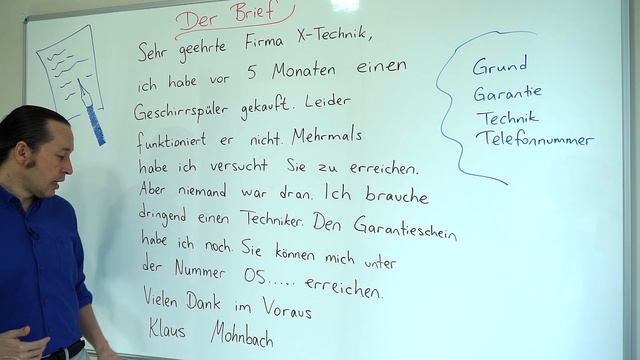 Der Brief
Sehr geehrte Firma X-Technik,
ich habe vor 5 Monaten einen
Geschirrspüler gekauft. Leider
funktioniert er nicht. Mehrmals
habe ich versucht Sie zu erreichen.
Aber niemand war dran. Ich brauche
dringend einen Techniker. Den Garantieschein
habe ich noch. Sie können mich unter
der Nummer 05..... erreichen.
Vielen Dank im Voraus
Klaus Mohnbach
Grund
Garantie
Technik
Telefonnummer